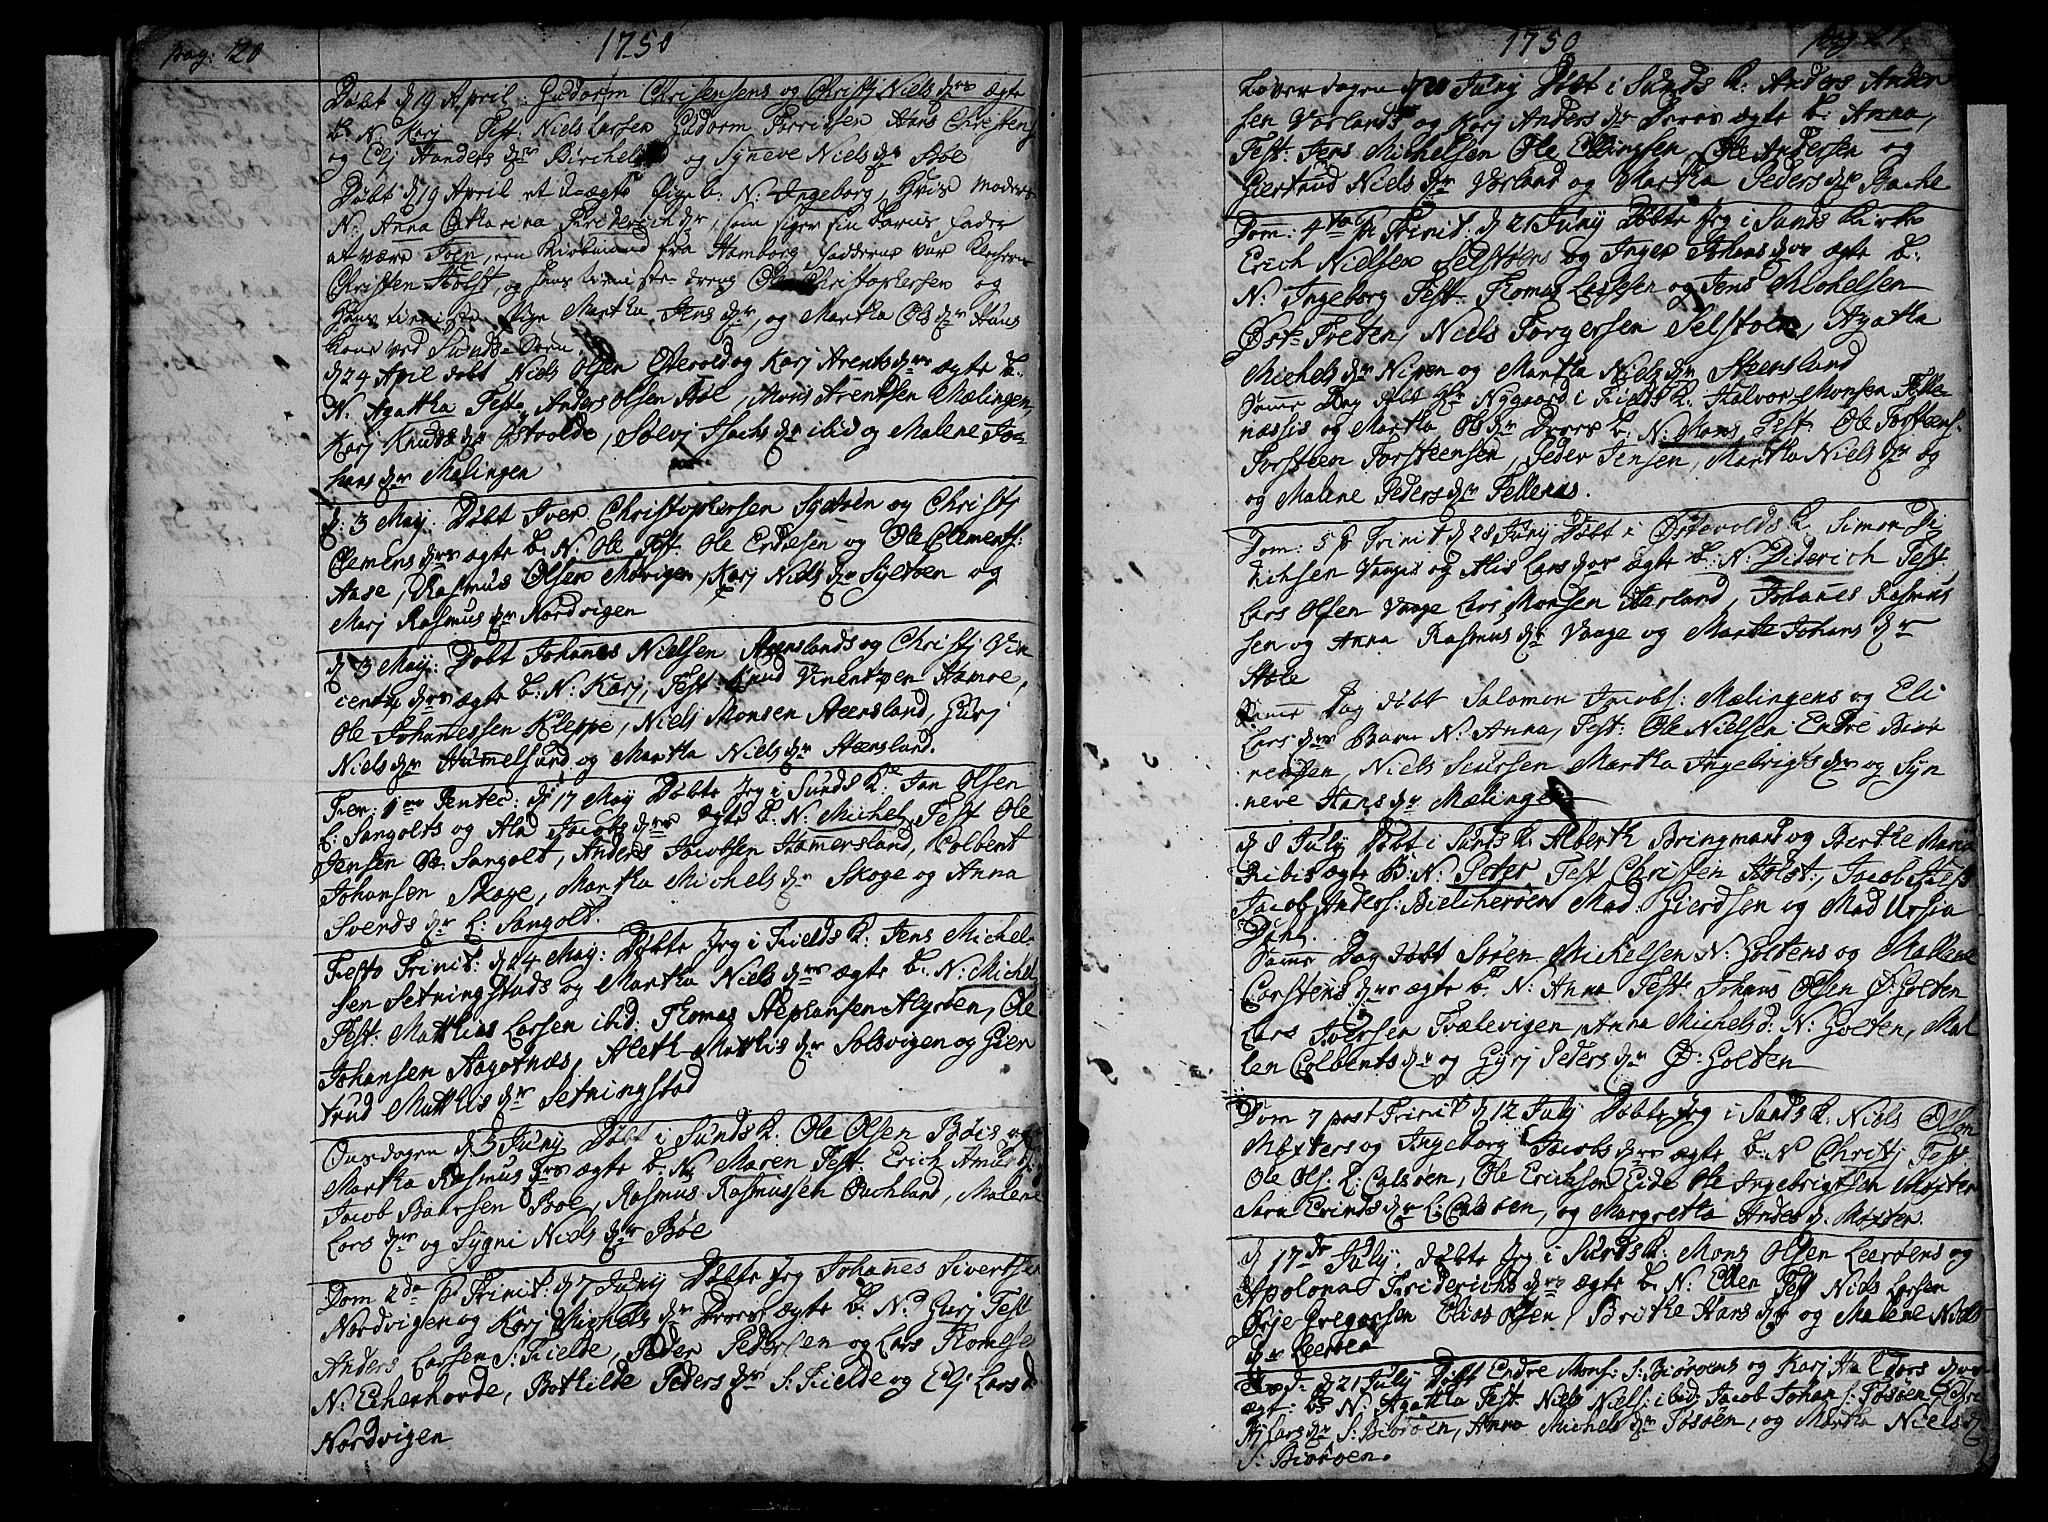 pag: 120
1750
Døbt d 19 April: Gudorm Chrisensens og Christj Niels dr ægte
B: N: Karj Test: Niels Larsen Gudorm Christens
og Elj Anders dr og Synneve Niels dr Bøe
Døbt d 19 April et u-ægte Pige b: N: Ingeborg, Hvis Moders
N: Anna Catharina Friderich dr, som siger sin Barns fader
at være en fra Hamborg fadderne var
Christen Holst, og hans dreng Ole Christophersen og
Hans Pige Martha Jens dr, og Martha Ols dr Hans
Kone ved Sunds-Øren
d 24 April døbt Niels Olsen Østevold og Karj Arents dr ægte b:
N: Agatha Test: Anders Olsen Hol, Mons Arentsen Mælingen,
Karj Knuds dr Østvolde, Sølvj Isachs dr ibid og Malene Jo-
hans dr Mælingen
d: 3 May: Døbt Iver Christophersen Syltøen og Christj
Clemens dr ægte b: N: Ole Test: Ole Erichsen og Ole Clements:
Aase, Rasmus Olsen Møvigen, Karj Niels dr Syltøen og
Marj Rasmus dr Nordvigen
d 3 May: Døbt Johanes Nielsen Steenslands og Christj Vin
centz dr ægte b: N: Karj, Test: Knud Vinentzen Hamre,
Ole Johanessen Kleppe, Niels Monsen Steensland, Gurj
Niels dr Hummelsund og Martha Niels dr Steensland.
Fer: 1ma Pentec: d 17 May Døbte Jeg i Sunds K: Jan Olsen
L: Sangolts og Ala Jacobs dr ægte b: N: Michel Test Ole
Jensen St: Sangolt, Anders Jacobsen Hamersland, Colbent
Johansen Skoge, Martha Michels dr Skoge og Anna
Svends dr L: Sangolt.
Festo Trinit: d 24 May: Døbte Jeg i Fields K: Jens Michel-
sen Setningstads og Martha Niels dr ægte b: N: Michel
Test: Matthias Larsen ibid: Thomas Stephansen Algrøen, Ole
Johansen Aagotnæs, Aleth Matthis dr Solsvigen og Gier
trud Matthis dr Setningstad
Onsdagen d 3 Juny Døbt i Sunds K: Ole Olsen Bøis og
Martha Rasmus drs ægte b: N: Maren Test: Erich Amunds:
Jacob Baarsen Bøe, Rasmus Rasmussen Buchland, Malene
Lars dr og Sygni Niels dr Bøe
Dom 2da p: Trinit: d 7 Juny Døbte Jeg Johanes Sivertsen
Nordvigen og Karj Michels dr Deres ægte b: N: Gurj Test
Anders Larsen S: Fielde, Peder Pedersen og Lars Thomesen
N: Eckerhovde, Bothilde Peders dr S: Fielde og Elj Lars d
Nordvigen
1750
Løverdagen d 20 Juny Døbt i Sunds K: Anders Ander
sen Vorlands og Karj Anders dr Deres ægte b: Anna,
Test: Jens Michelsen Ole Ellingsen, Ole Andersen og
Giertrud Niels dr Vorland og Martha Peders dr Bache
Dom: 4ta p: Trinit: d 21 Juny Døbte Jeg i Sunds Kirke
Erich Nielsen Selstøens og Inger Johans dr ægte b:
N: Ingeborg Test: Thomas Larssen og Jens Michelsen
Øst-Treten, Niels Torgersen Selstøen, Agatha
Michels dr Niven og Martha Niels dr Steensland
Samme Dag døbt Hr Nygaard i Fields K: Halvor Monsen Telle
næssis og Martha Ols dr Deres b: N: Mons Test: Ole Torsteens-
Torsteen Torsteensen, Peder Jensen, Martha Niels dr og
og Malene Peders dr Tellenæs.
Dom: 5 p Trinit d 28 Juny Døbt i Østevolds K: Simon Di
richsen Vaagis og Alis Lars dr ægte b: N: Diderich Test:
Lars Olsen Vaage Lars Monsen Harland, Johannes Rasmus
sen og Anna Rasmus dr Vaage og Marthe Johans dr
Hole
Samme Dag døbt Salomon Jacobs: Mælingens og Eli
Lars drs Barn N: Anna, Test: Ole Nielsen Endre Biør
nensen, Niels Siursen Martha Ingebrigts dr og Syn
neve Hans dr Mælingen
d 8 July Døbt i Sunds K: Alberth Bringmand og Birthe Maria
Ribis ægte B: N: Peter Test Christen Holst, Jacob
Jacob Anders: Bielcherøen Mad: Gierdsen og Mad Ursia
Dihl.
Samme Dag døbt Søren Michelsen N: Goltens og Mallene
Corstens dr ægte b. N: Anna Test: Johans Olsen Ø: Golten
Lars Iversen Trælevigen, Anna Michels d: N: Golten, Mal
len Colbents dr og Gyrj Peders dr Ø: Golten
Dom 7 post Trinit d 12 July Døbte Jeg i Sunds K: Niels Olsen
Møxters og Ingeborg Jacobs dr ægte b: N Christj Test
Ole Ols: L: Calsøen, Ole Erichsen Eide Ole Ingebrigtsen Møxter
Sara Erinds dr L: Calsøen, og Margretha Andes d. Møxter.
d 17de July: døbte Jeg i Sunds K: Mons Olsen Leerøens og
Apolona Friderichs dr ægte b. N: Ellen Test Niels Larsen
Ørje Gregersen Elias Olsen, Brithe Hans dr og Malene Niels
dr Leerøen
d 21 July Døbt Endre Mons: S: Biørøens og Karj Halvors dr
ægt: b: N: Agatha Test: Niels Niels: ibid, Jacob Johan s: Tøsøen
Lars dr S: Biørøen, Anna Michels dr Tøsøen, og Martha Niels d
S: Biørøen.